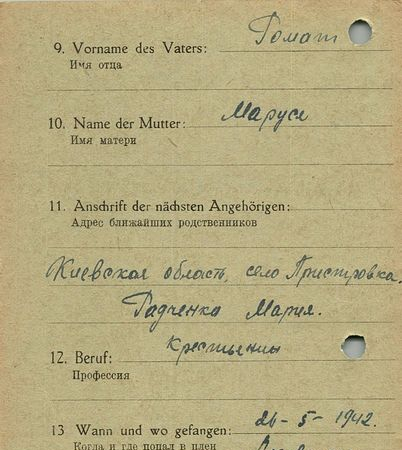 9. Vorname des Vaters: Роман
Имя отца
10. Name der Mutter: Маруся
Имя матери
11. Anschrift der nächsten Angehörigen:
Адрес ближайших родственников
Киевская область, село Пристровка.
Радченко Мария.
12. Beruf: крестьянин
Профессия
13 Wann und wo gefangen: 26-5-1942.
Когда и где попал в плен